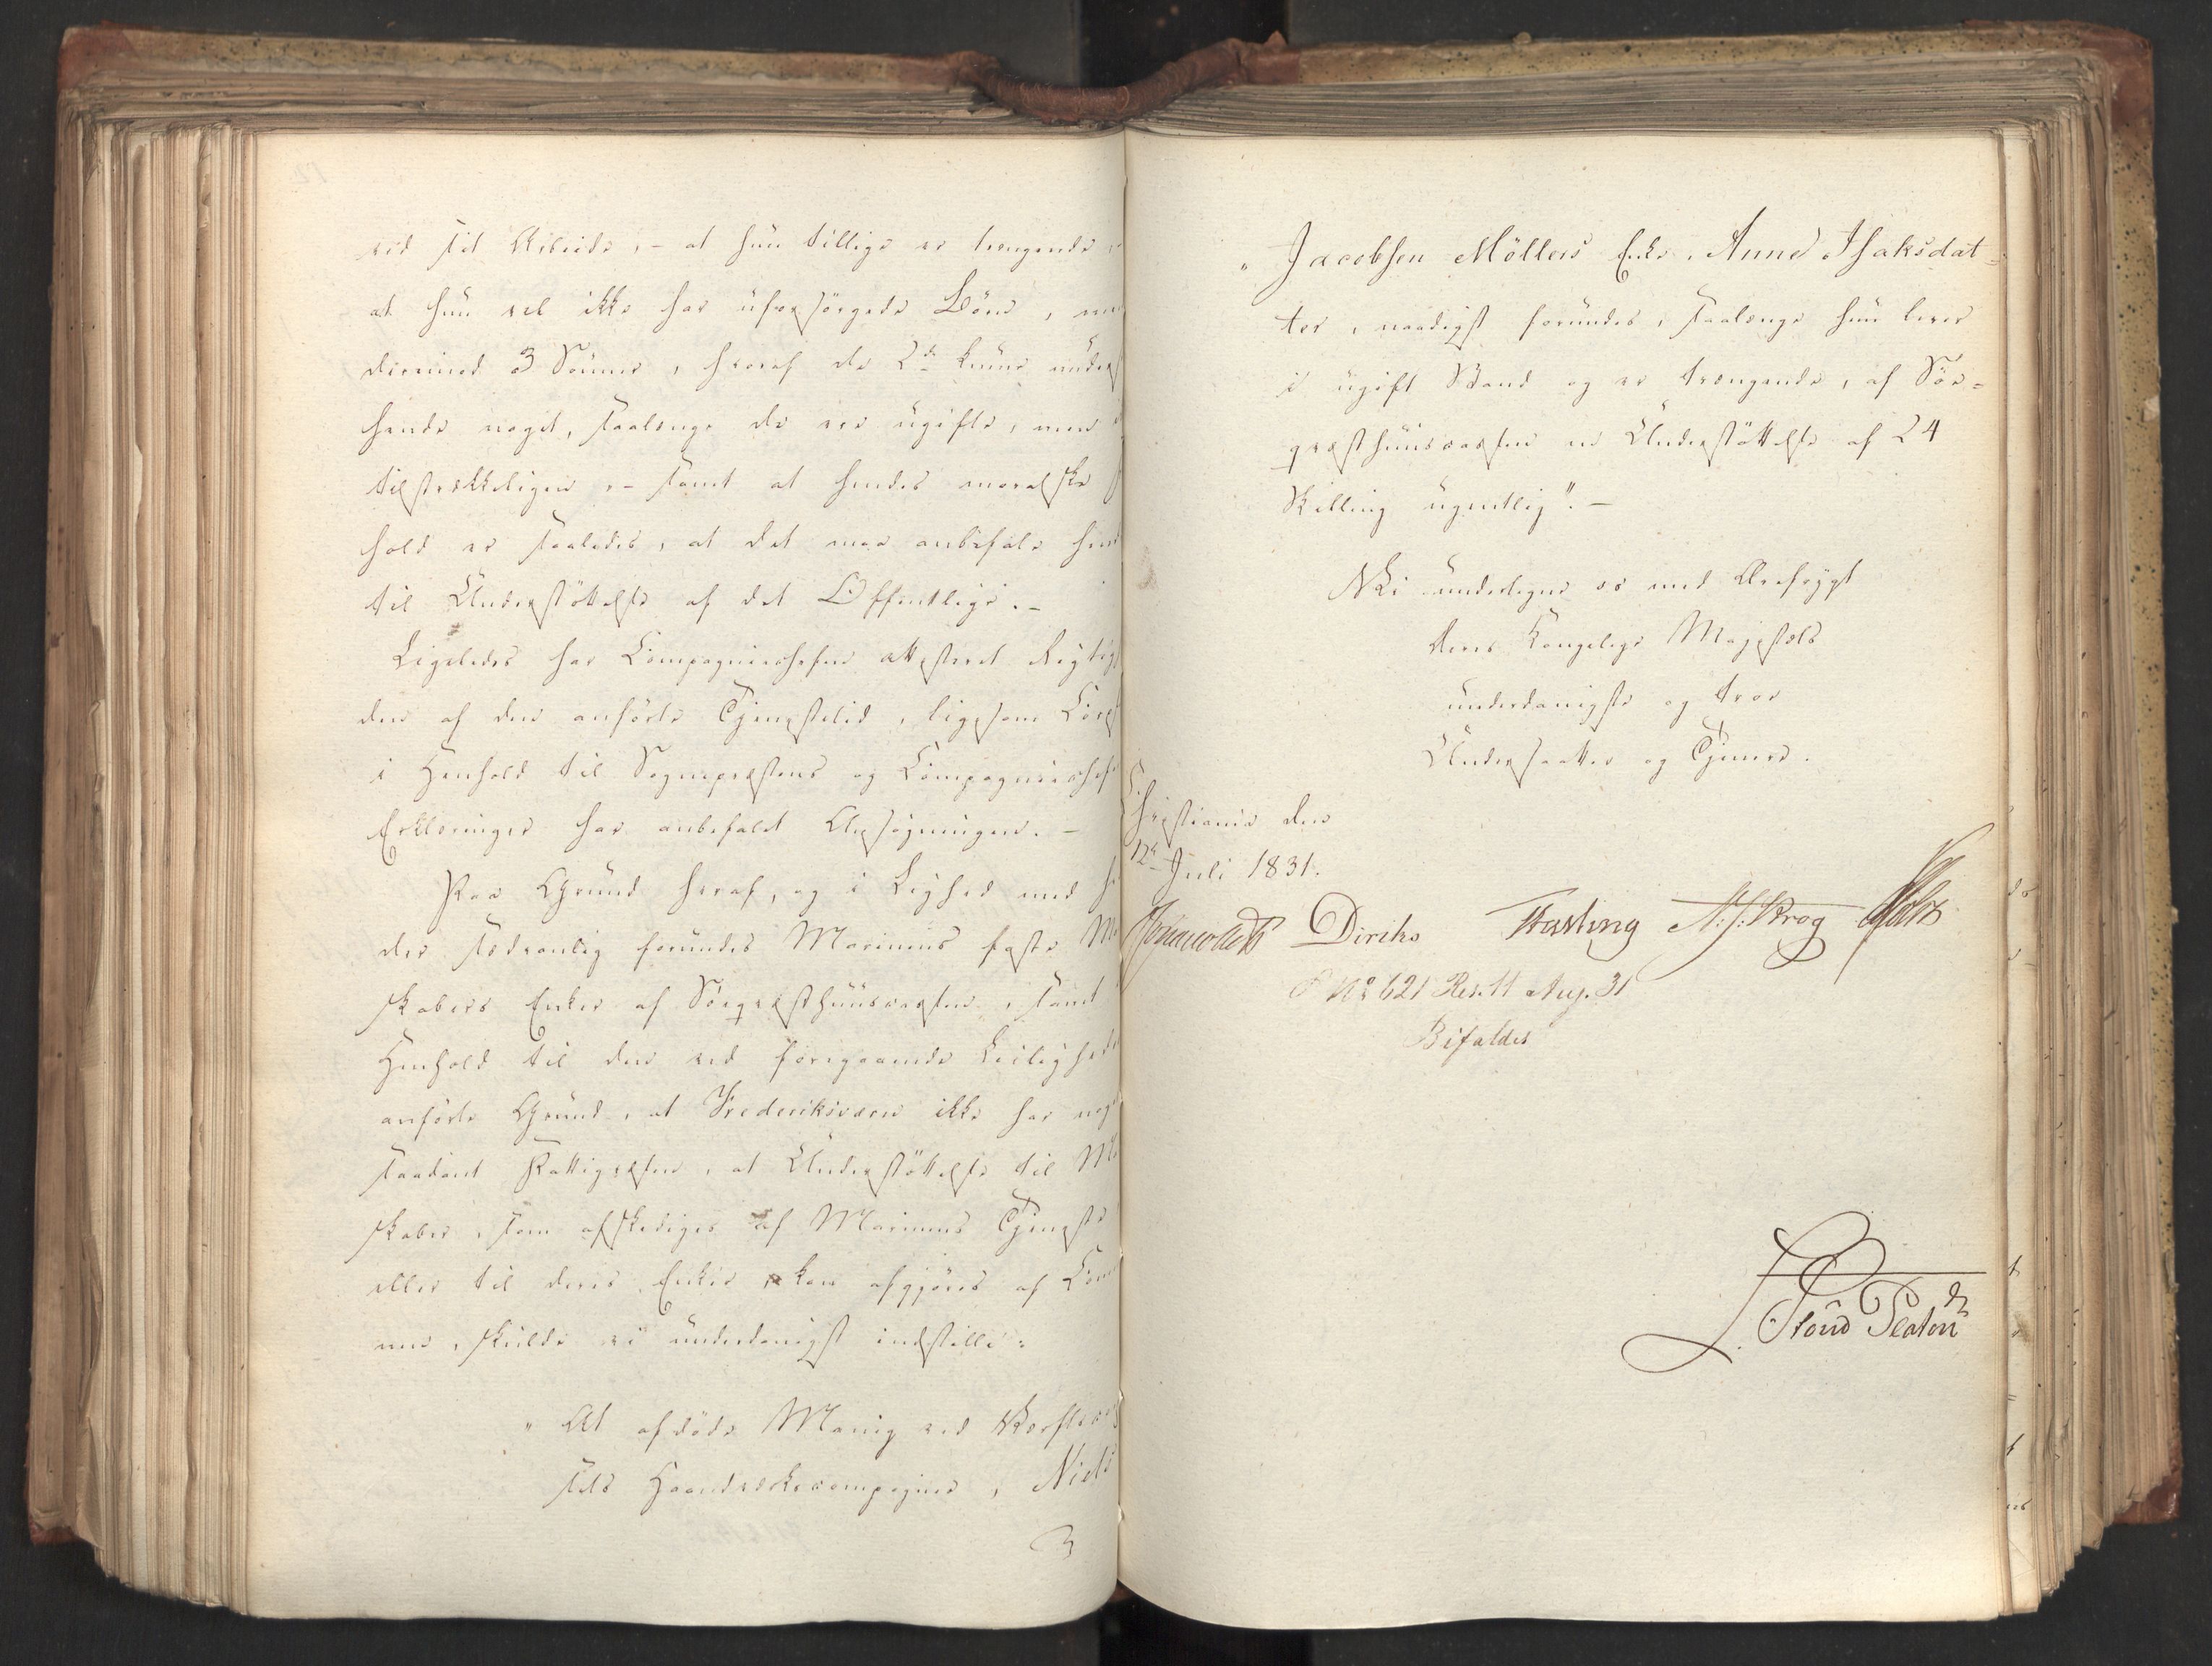 ved sit Arbeide, – at hun tillige er trængende,
at hun vel ikke har uforsörgede Börn, men
derimod 3 Sönner, hvoraf de 2de kunne under
hende noget, saalænge de ere ugifte, men
tilstrækkeligen, – samt at hendes moralske
hold er saaledes, at det maa anbefale hende
til Understöttelse af det Offentlige. –
Ligeledes har Compagniechefen attesteret Rigtig
den af den anförte Tjenestetid, ligesom Corps
i Henhold til Sognepræstens og Compagniechef
Erklæringer har anbefalet Ansögningen. –
Paa Grund heraf, og i Lighed med
der sædvanlig forundes Marinens faste
skabers Enker af Söeqvæsthuuscassen, samt
Henhold til den ved foregaaende Leilighed
anförte Grund, at Frederiksværn ikke har noget
saadant Fattigvæsen, at Understöttelse til
skaber, som afskediges af Marinens Tjeneste
eller til deres Enker, kan afgjöres af Com
nen, skulde vi underdanigst indstille:
„At afdöde Menig ved Værfts
sets Haandværkscompagnie, Niels
„Jacobsen Möllers Enke, Anne Isaksdat=
ter, naadigst forundes, saalænge hun lever
i ugift Stand og er trængende, af Söe=
qvæsthuuscassen en Understöttelse af 24
Skilling ugentlig". –
Vi undertegne os med Ærefrygt
Deres Kongelige Majestæts
underdanigste og troe
Undersaatter og Tjenere.
Christiania den
12te Juli 1831.
Diriks Fasting N. J. Krog Holst
No 621 Res. 11 Aug. 31
Bifaldes